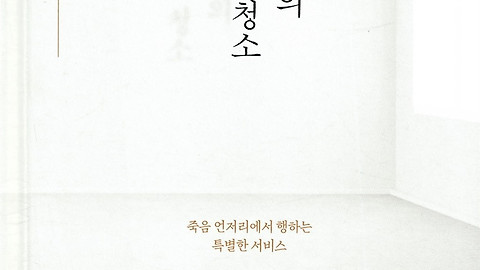 의
청소
죽음 언저리에서 행하는
특별한 서비스